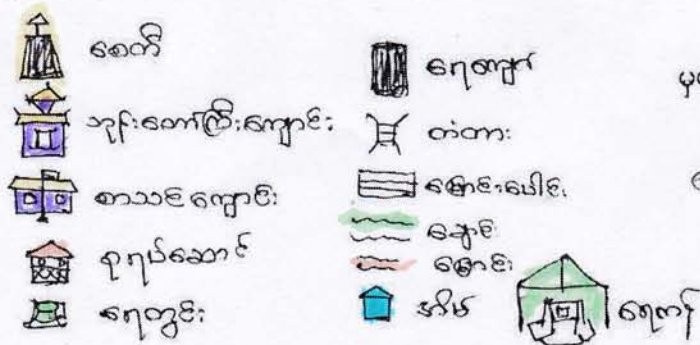 စေတီ
ဘုန်းတော်ကြီးကျောင်း
စာသင်ကျောင်း
ဇရပ်ဆောင်
ရေတွင်း
ရေလျှောက်
တံတား
မြောင်းပေါင်
ချောင်း
မြောင်း
အိမ်
ရေကန်